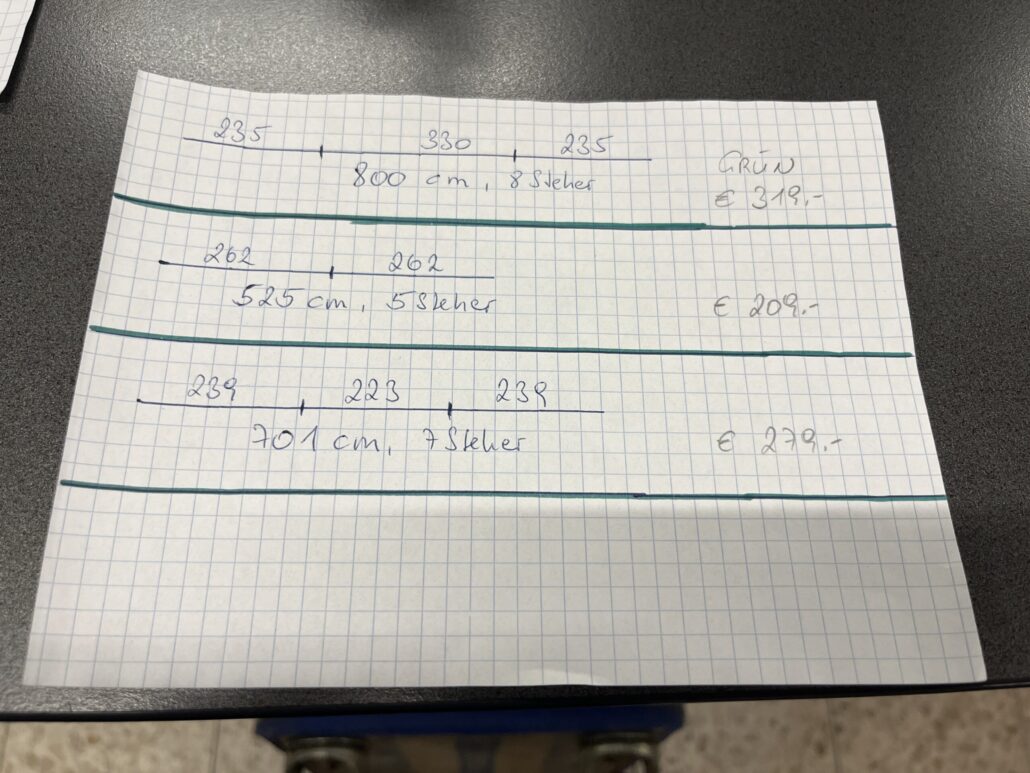 235 330 235
800 cm, 8 Steher
GRÜN
€ 319,-
262 262
525 cm, 5 Steher € 209,-
239 223 239
701 cm, 7 Steher € 279,-